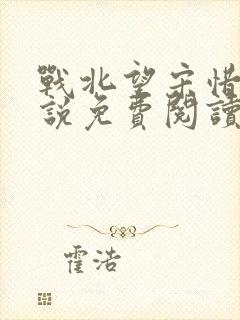 戰北望宋惜
說免費閱讀
霍浩